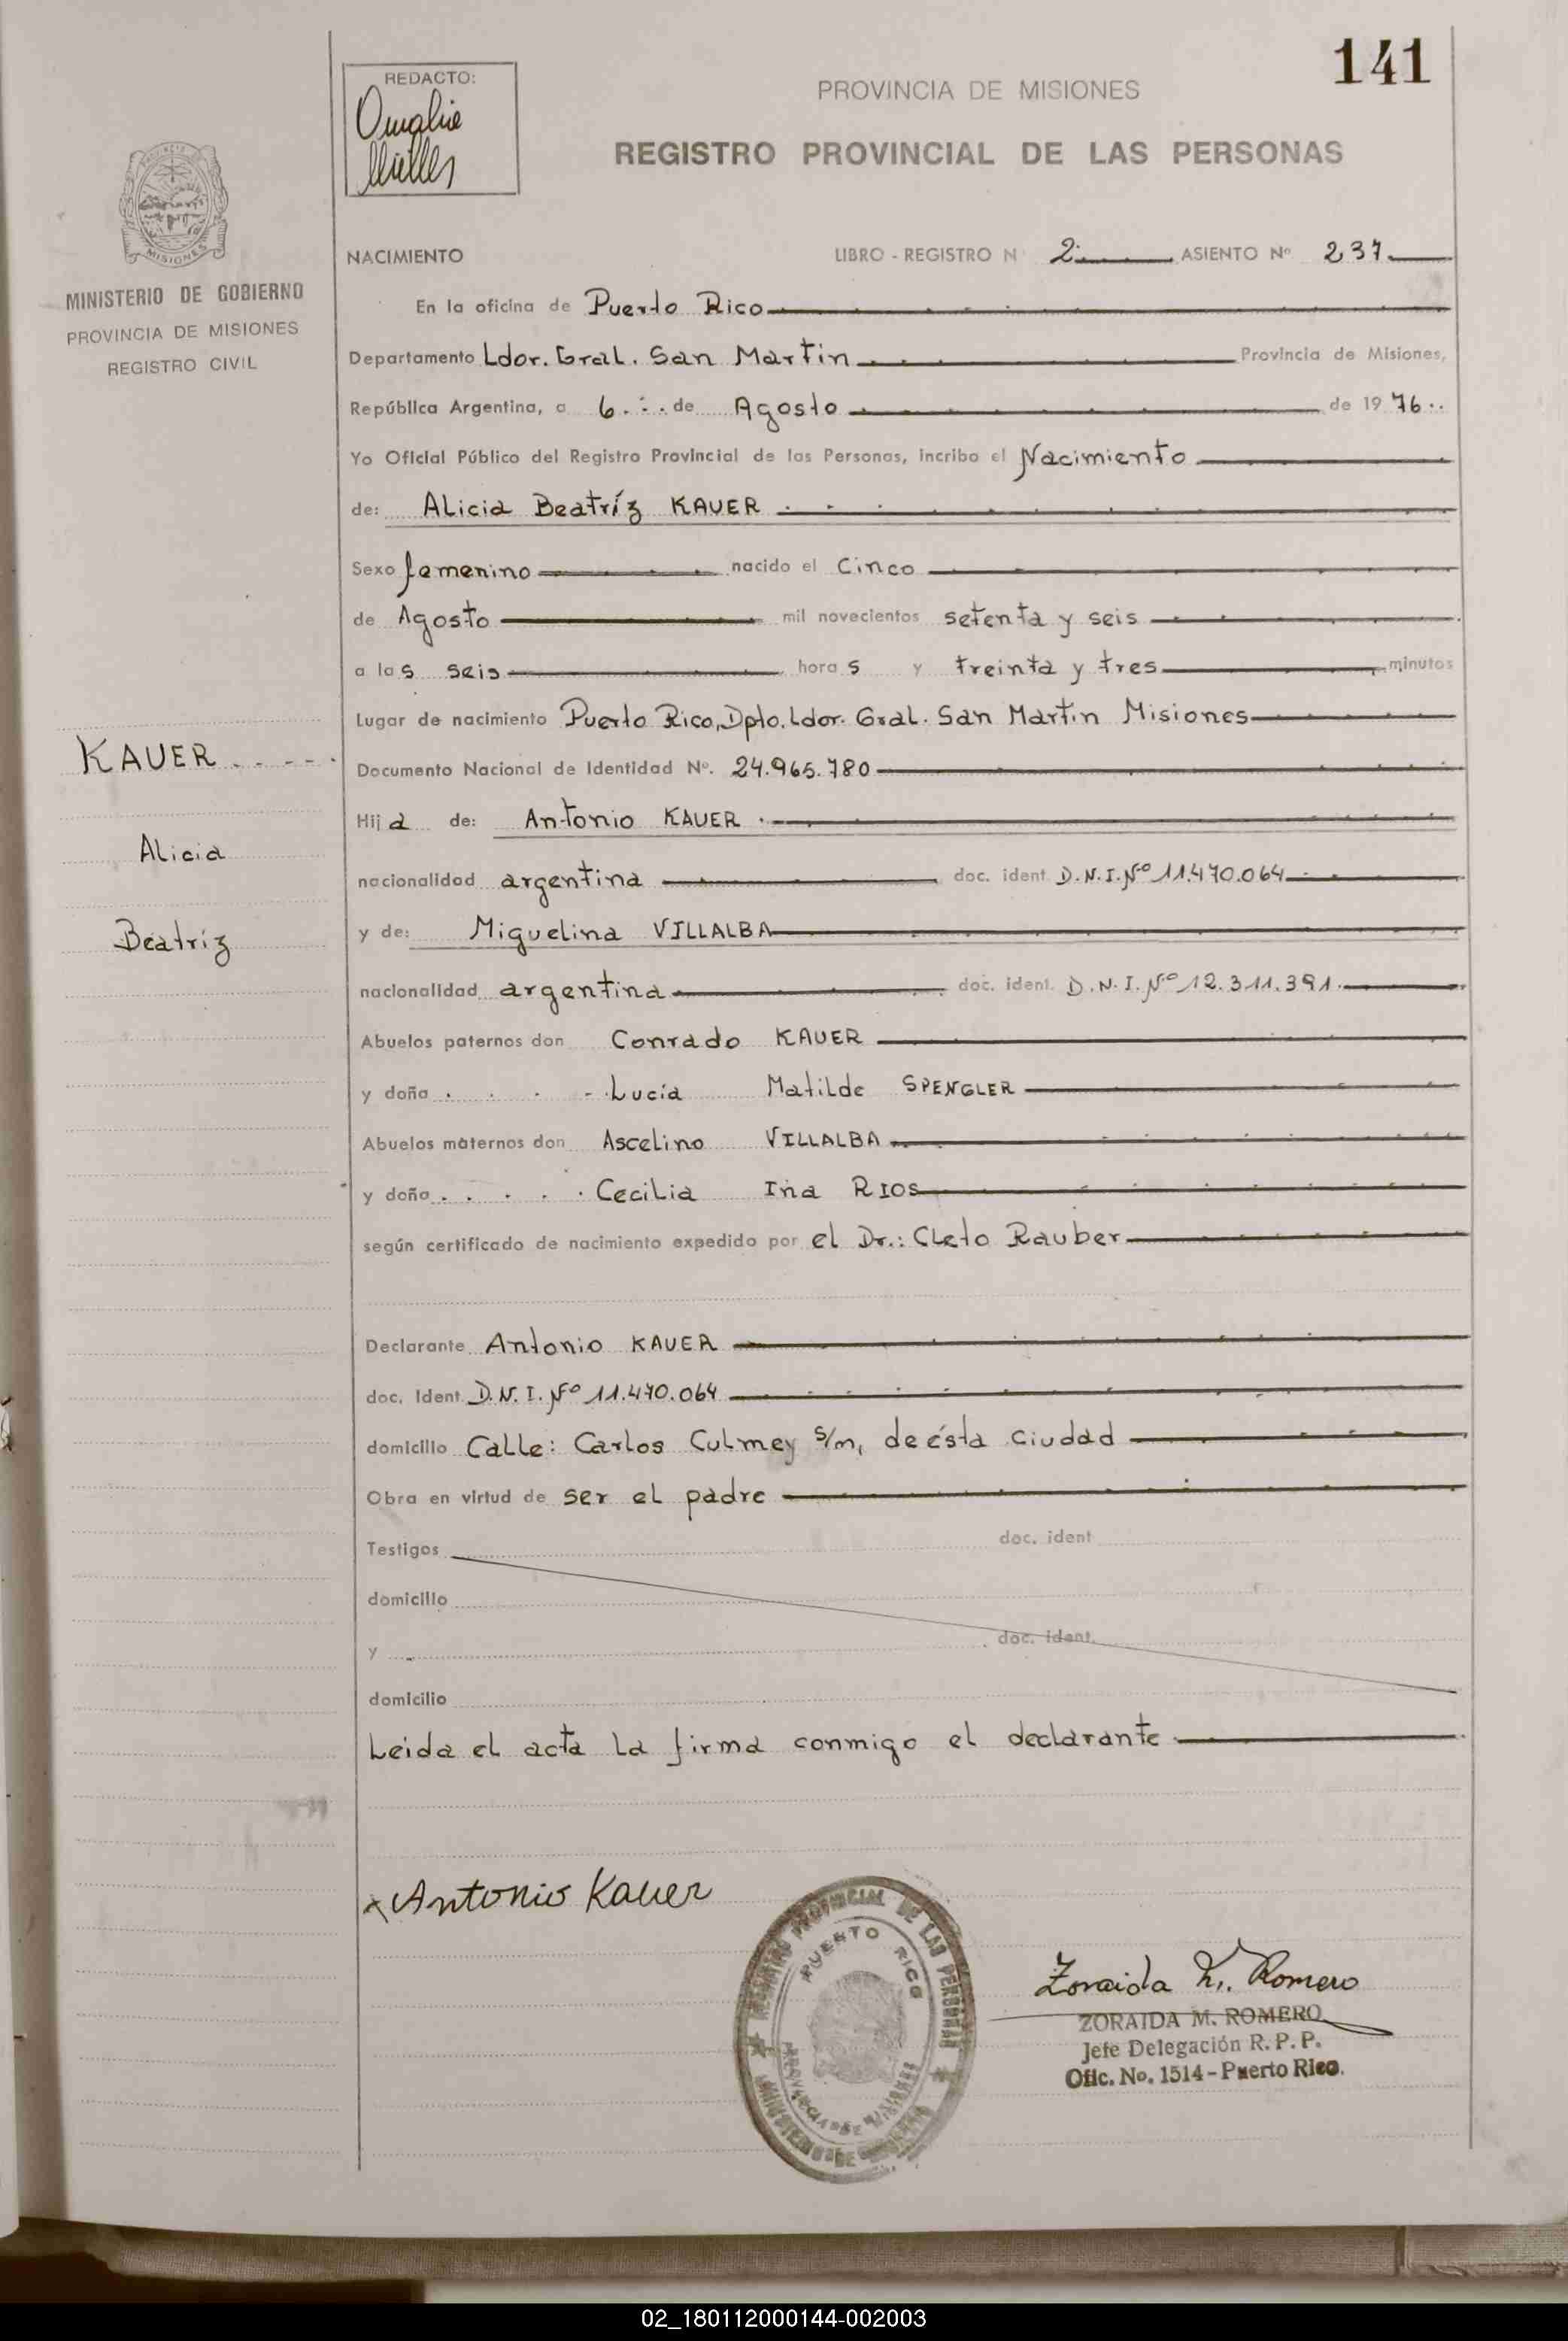 141
REDACTO:
PROVINCIA DE MISIONES
REGISTRO PROVINCIAL DE LAS PERSONAS
MISIONES
MINISTERIO DE GOBIERNO
PROVINCIA DE MISIONES
REGISTRO CIVIL
NACIMIENTO LIBRO - REGISTRO N 2 ASIENTO Nº 237
En la oficina de Puerto Rico
Departamento Ldor. Gral. San Martin Provincia de Misiones,
República Argentina, a 6 de Agosto de 1976
Yo Oficial Público del Registro Provincial de las Personas, incribo el Nacimiento
de: Alicia Beatríz KAUER
Sexo femenino nacido el Cinco
de Agosto mil novecientos setenta y seis
a las seis horas y treinta y tres minutos
Lugar de nacimiento Puerto Rico, Dpto. Ldor. Gral. San Martin Misiones
KAUER
Documento Nacional de Identidad Nº. 24.965.780
Hija de: Antonio KAUER
Alicia
nacionalidad argentina doc. ident. D.N.I.Nº 11.470.064
Beatríz
y de: Miguelina VILLALBA
nacionalidad argentina doc. ident. D.N.I.Nº 12.311.391
Abuelos paternos don Conrado KAUER
y doña Lucía Matilde SPENGLER
Abuelos maternos don Ascelino VILLALBA
y doña Cecilia RIOS
según certificado de nacimiento expedido por el Dr.: Cleto Rauber
Declarante Antonio KAUER
doc. Ident. D.N.I.Nº 11.470.064
domicilio Calle: Carlos Culmey s/n, de ésta ciudad
Obra en virtud de ser el padre
Testigos doc. ident
domicilio
y doc. ident.
domicilio
Leida el acta la firma conmigo el declarante
Antonio Kauer
REGISTRO PROVINCIAL DE LAS PERSONAS
PUERTO RICO
PROVINCIA DE MISIONES
MINISTERIO DE GOBIERNO
Zoraida M. Romero
ZORAIDA M. ROMERO
Jefe Delegación R. P. P.
Ofic. No. 1514 - Puerto Rico.
02_180112000144-002003